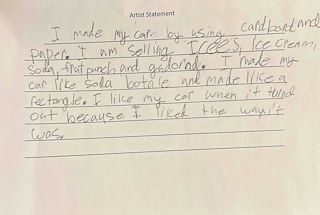 Artist Statement
I made my care by using cardbord and
paper. I am selling Icees, Ice cream,
soda, frut punch and gadorad. I made my
car like soda botale and made like a
rectangle. I like my car when it turnd
out because I liked the way it
was.